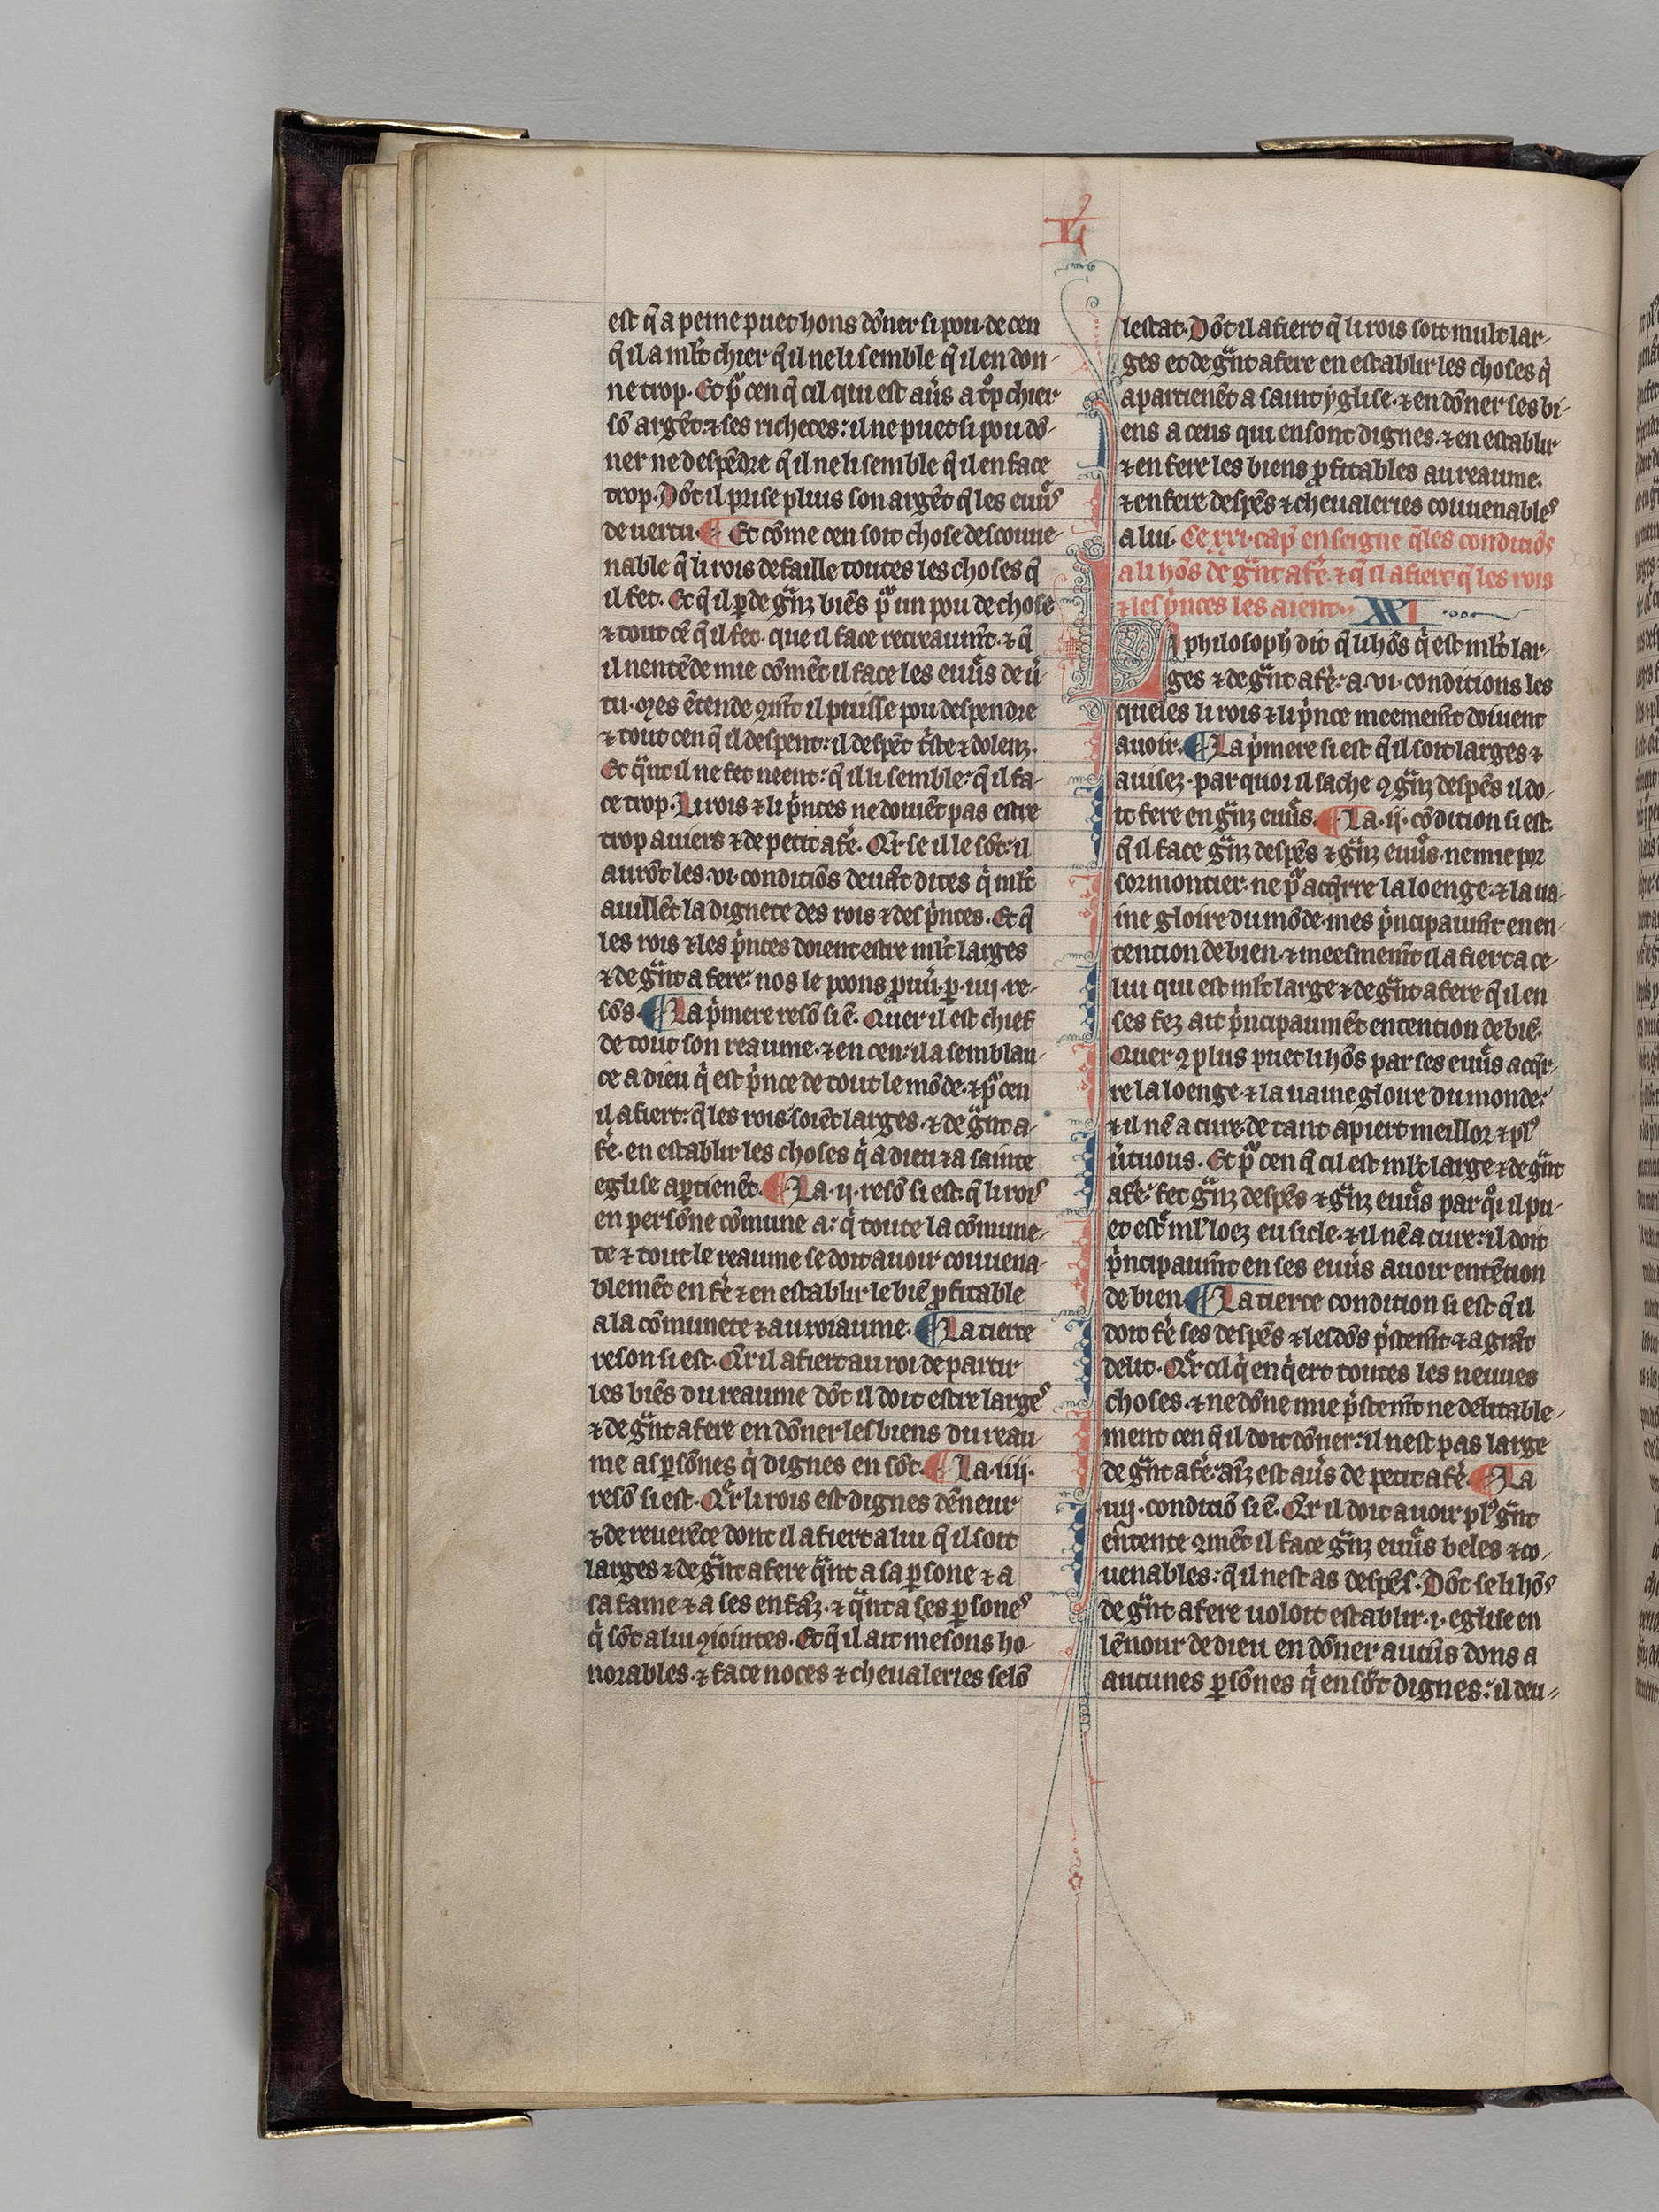 L
est q̄ a peine puet hons dōner si pou de cen
q̄ il a ml̄t chier q̄ il ne li semble q̄ il en don-
ne trop. Et pͣ cen q̄ cil qui est aūs a tͦp chier
sō argēt ⁊ ses richeces: il ne puet si pou dō-
ner ne despēdre q̄ il ne li semble q̄ il en face
trop. Dōt il prise plus son argēt q̄ les euūs
de uertu. ¶ Et cōme cen soit chose descouue-
nable q̄ li rois defaille toutes les choses q̄
il fet. Et q̄ il ꝑde gͣnz biēs pͣ un pou de chose
⁊ tout cē q̄ il fet. que il face retreaum̄t. ⁊ q̄
il nentēde mie cōmēt il face les euūs de ū-
tu. mes ētende ꝯm̄t il puisse pou despendre
⁊ tout cen q̄ il despent: il despēt tͥste ⁊ dolenz.
Et qͣnt il ne fet neent: q̄ il li semble: q̄ il fa-
ce trop. Li rois ⁊ li pͥnces ne doiuēt pas estre
trop auiers ⁊ de petit afē. Qͣr se il le sōt: il
aurōt les .vi. conditiōs deuāt dites qͥ ml̄t
auillēt la dignete des rois ⁊ des pͥnces. Et q̄
les rois ⁊ les pͥnces doient estre ml̄t larges
⁊ de gͣnt afere: nos le poons ꝓuū ꝑ .iiij. re-
sōs. ¶ La pͥmere resō si ē. Quer il est chief
de tout son reaume. ⁊ en cen: il a semblan-
ce a dieu qͥ est pͥnce de tout le mōde. ⁊ pͣ cen
il afiert: q̄ les rois soiēt larges. ⁊ de gͣnt a-
fē. en establir les choses qͥ a dieu ⁊ a sainte
eglise aꝑtienēt. ¶ La .ij. resō si est. q̄ li rois
en persōne cōmune a: qͥ toute la cōmune-
te ⁊ tout le reaume se doit auoir couuena-
blemēt en fē ⁊ en establir le biē ꝓfitable
a la cōmunete ⁊ au roiaume. ¶ La tierce
reson si est. Qͣr il afiert au roi departir
les biēs du reaume dōt il doit estre larges
⁊ de gͣnt afere en dōner les biens du reau-
me as ꝑsōnes qͥ dignes en sōt. ¶ La .iiij.
resō si est. Qͣr li rois est dignes dēneur
⁊ de reuerēce dont il afiert a lui q̄ il soit
larges ⁊ de gͣnt afere qͣnt a sa ꝑsone ⁊ a
sa fame ⁊ a ses enfāz. ⁊ qͣnt a ses ꝑsones
qͥ sōt a lui ꝯiointes. Et q̄ il ait mesons ho-
norables. ⁊ face noces ⁊ cheualeries selō
lestat. Dōt il afiert q̄ li rois soit mult lar-
ges et de gͣnt afere en establir les choses qͥ
apartienēt a saint yglise. ⁊ en dōner ses bi-
ens a ceus qui en sont dignes. ⁊ en establir
⁊ en fere les biens ꝓfitables au reaume.
⁊ en fere despēs ⁊ cheualeries couuenables
a lui. Ce .xxi. cap̄ enseigne q̄les conditiōs
a li hōs de gͣnt afē. ⁊ q̄ il afiert q̄ les rois
⁊ les pͥnces les aient. XXI
Li philosoph dit q̄ li hōs qͥ est ml̄t lar-
ges ⁊ de gͣnt afē: a .vi. conditions les
queles li rois ⁊ li pͥnce meemem̄t doiuent
auoir. ¶ La pͥmere si est q̄ il soit larges ⁊
auisez. par quoi il sache ꝯ gͣnz despēs il do-
it fere en gͣnz euūs. ¶ La .ij. cōdition si est.
q̄ il face gͣnz despēs ⁊ gͣnz euūs. ne mie por
sormontier. ne pͣ acq̄rre la loenge. ⁊ la ua-
ine gloire du mōde. mes pͥncipaum̄t en en-
tention de bien. ⁊ meesmem̄t il afiert a ce-
lui qui est ml̄t large ⁊ de gͣnt afere q̄ il en
ses fez ait pͥncipaumēt entention de biē.
Quer ꝯ plus puet li hōs par ses euūs acq̄r-
re la loenge. ⁊ la uaine gloire du monde:
⁊ il nē a cure. de tant apiert meillor ⁊ plꝰ
ūtuous. Et pͣ cen q̄ cil est ml̄t large ⁊ de gͣnt
afē: fet gͣnz despēs ⁊ gͣnz euūs par qͦi il pu-
et estͤ mlꝰ loez eu sicle. ⁊ il nē a cure: il doit
pͥncipaum̄t en ses euūs auoir entētion
de bien. ¶ La tierce condition si est q̄ il
doit fē ses despēs ⁊ les dōs pͥstem̄t ⁊ a grāt
delit. Qͣr cil qͥ enqͥert toutes les neuues
choses. ⁊ ne dōne mie pͥstem̄t ne delitable-
ment cen q̄ il doit dōner: il nest pas large
de gͣnt afē: aīz est aūs de petit afē. ¶ La
.iiij. conditiō si ē. Qͣr il doit auoir plꝰ gͣnt
entente ꝯmēt il face gͣnz euūs beles ⁊ co-
uenables: q̄ il nest as despēs. Dōt se li hōs
de gͣnt afere uoloit establir .i. eglise en
lēnour de dieu en dōner aucūs dons a
aucunes ꝑsōnes qͥ en sōt dignes: il deu-